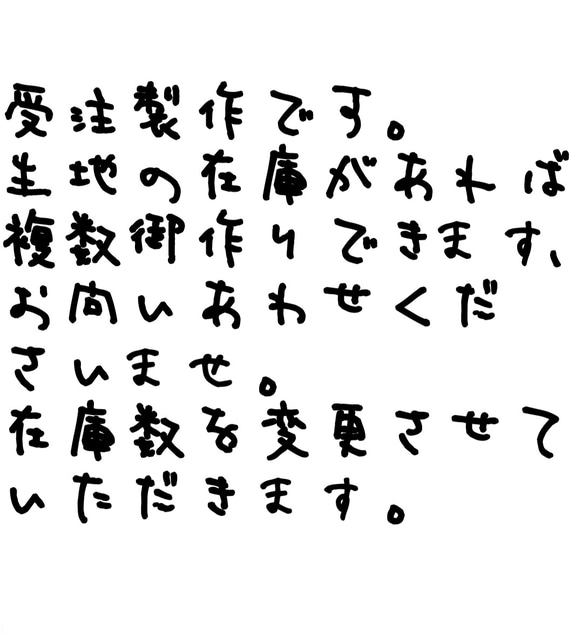 受注製作です。
生地の在庫があれば
複数御作りできます、
お向いあわせくだ
さいませ。
在庫数を変更させて
いただきます。